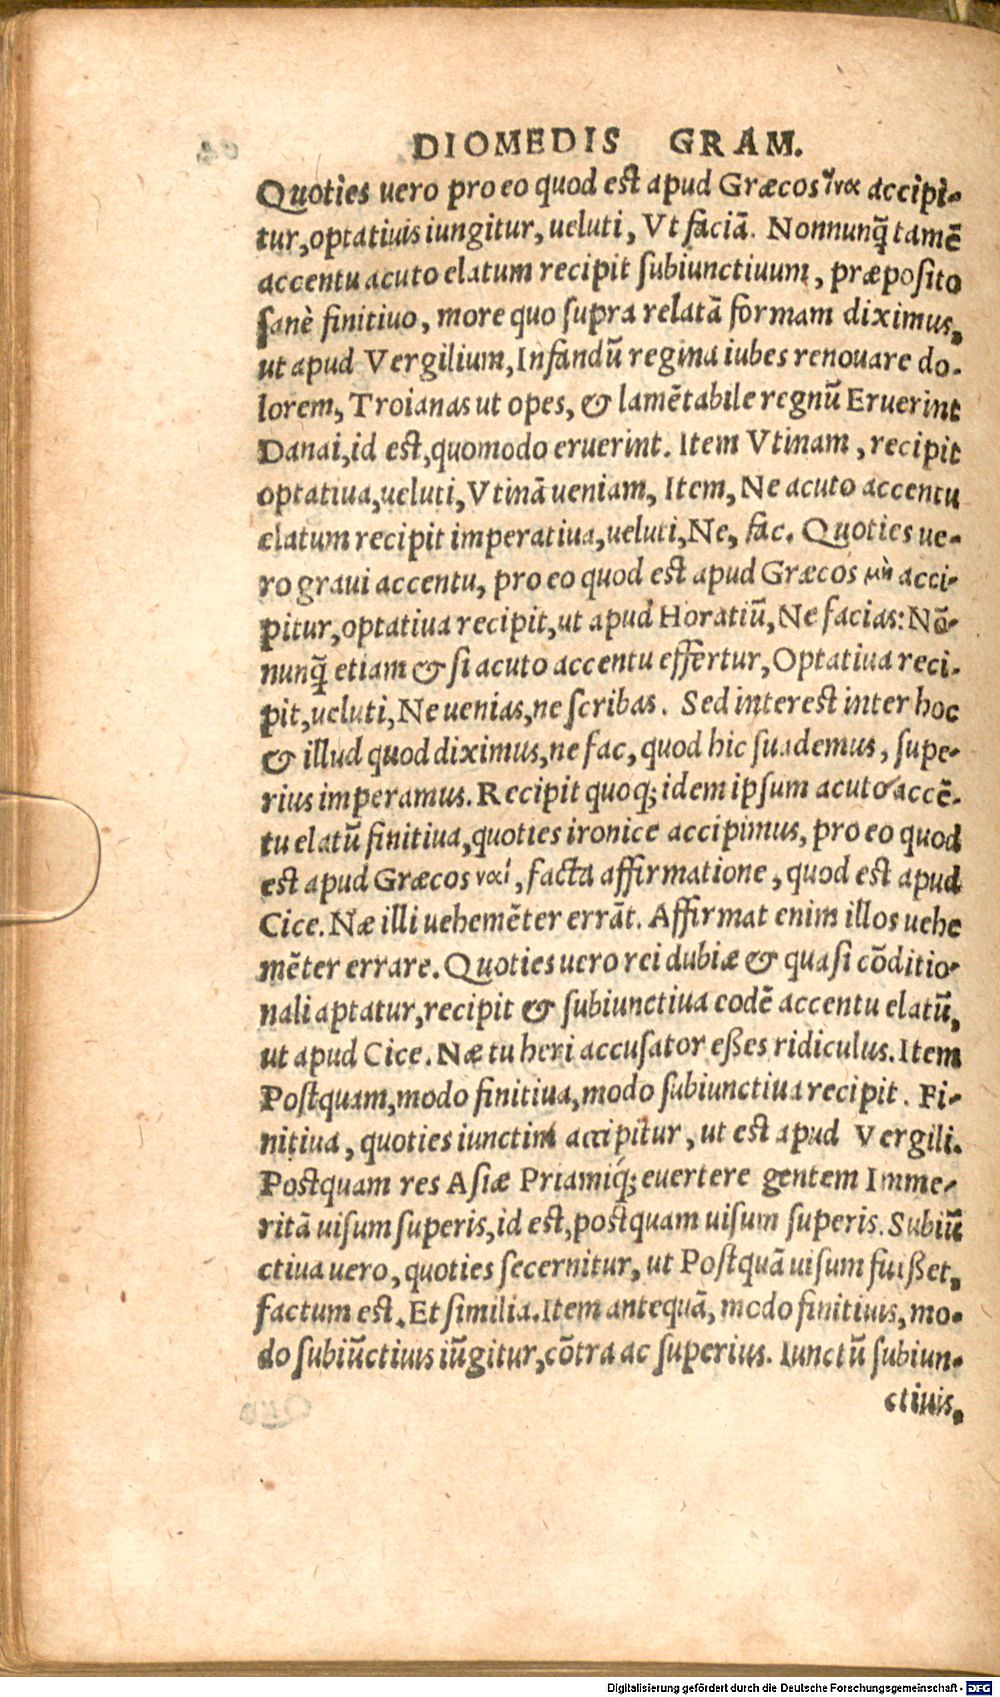 DIOMEDIS GRAM.
Quoties uero pro eo quod est apud Græcos ἵνα accipi-
tur, optatiuis iungitur, ueluti, Vt faciā. Nonnunq̃ tamē
accentu acuto elatum recipit subiunctiuum, præposito
sanè finitiuo, more quo supra relatā formam diximus,
ut apud Vergilium, Infandū regina iubes renouare do-
lorem, Troianas ut opes, & lamētabile regnū Eruerint
Danai, id est, quomodo eruerint. Item Vtinam, recipit
optatiua, ueluti, Vtinā ueniam, Item, Ne acuto accentu
elatum recipit imperatiua, ueluti, Ne, fac. Quoties ue-
ro graui accentu, pro eo quod est apud Græcos μὴ acci-
pitur, optatiua recipit, ut apud Horatiū, Ne facias: Nō-
nunq̃ etiam & si acuto accentu effertur, Optatiua reci-
pit, ueluti, Ne uenias, ne scribas. Sed interest inter hoc
& illud quod diximus, ne fac, quod hic suademus, supe-
rius imperamus. Recipit quoq; idem ipsum acuto accē-
tu elatū finitiua, quoties ironice accipimus, pro eo quod
est apud Græcos ναὶ, facta affirmatione, quod est apud
Cice. Næ illi uehemēter errāt. Affirmat enim illos uehe
mēter errare. Quoties uero rei dubiæ & quasi cōditio-
nali aptatur, recipit & subiunctiua eodē accentu elatū,
ut apud Cice. Næ tu heri accusator eßes ridiculus. Item
Postquam, modo finitiua, modo subiunctiua recipit. Fi-
nitiua, quoties iunctim accipitur, ut est apud Vergili.
Postquam res Asiæ Priamiq́; euertere gentem Imme-
ritā uisum superis, id est, postquam uisum superis. Subiū
ctiua uero, quoties secernitur, ut Postquā uisum fuißet,
factum est. Et similia. Item antequā, modo finitiuis, mo-
do subiūctiuis iūgitur, cōtra ac superius. Iunctū subiun-
ctiuis,
Digitalisierung gefördert durch die Deutsche Forschungsgemeinschaft - DFG